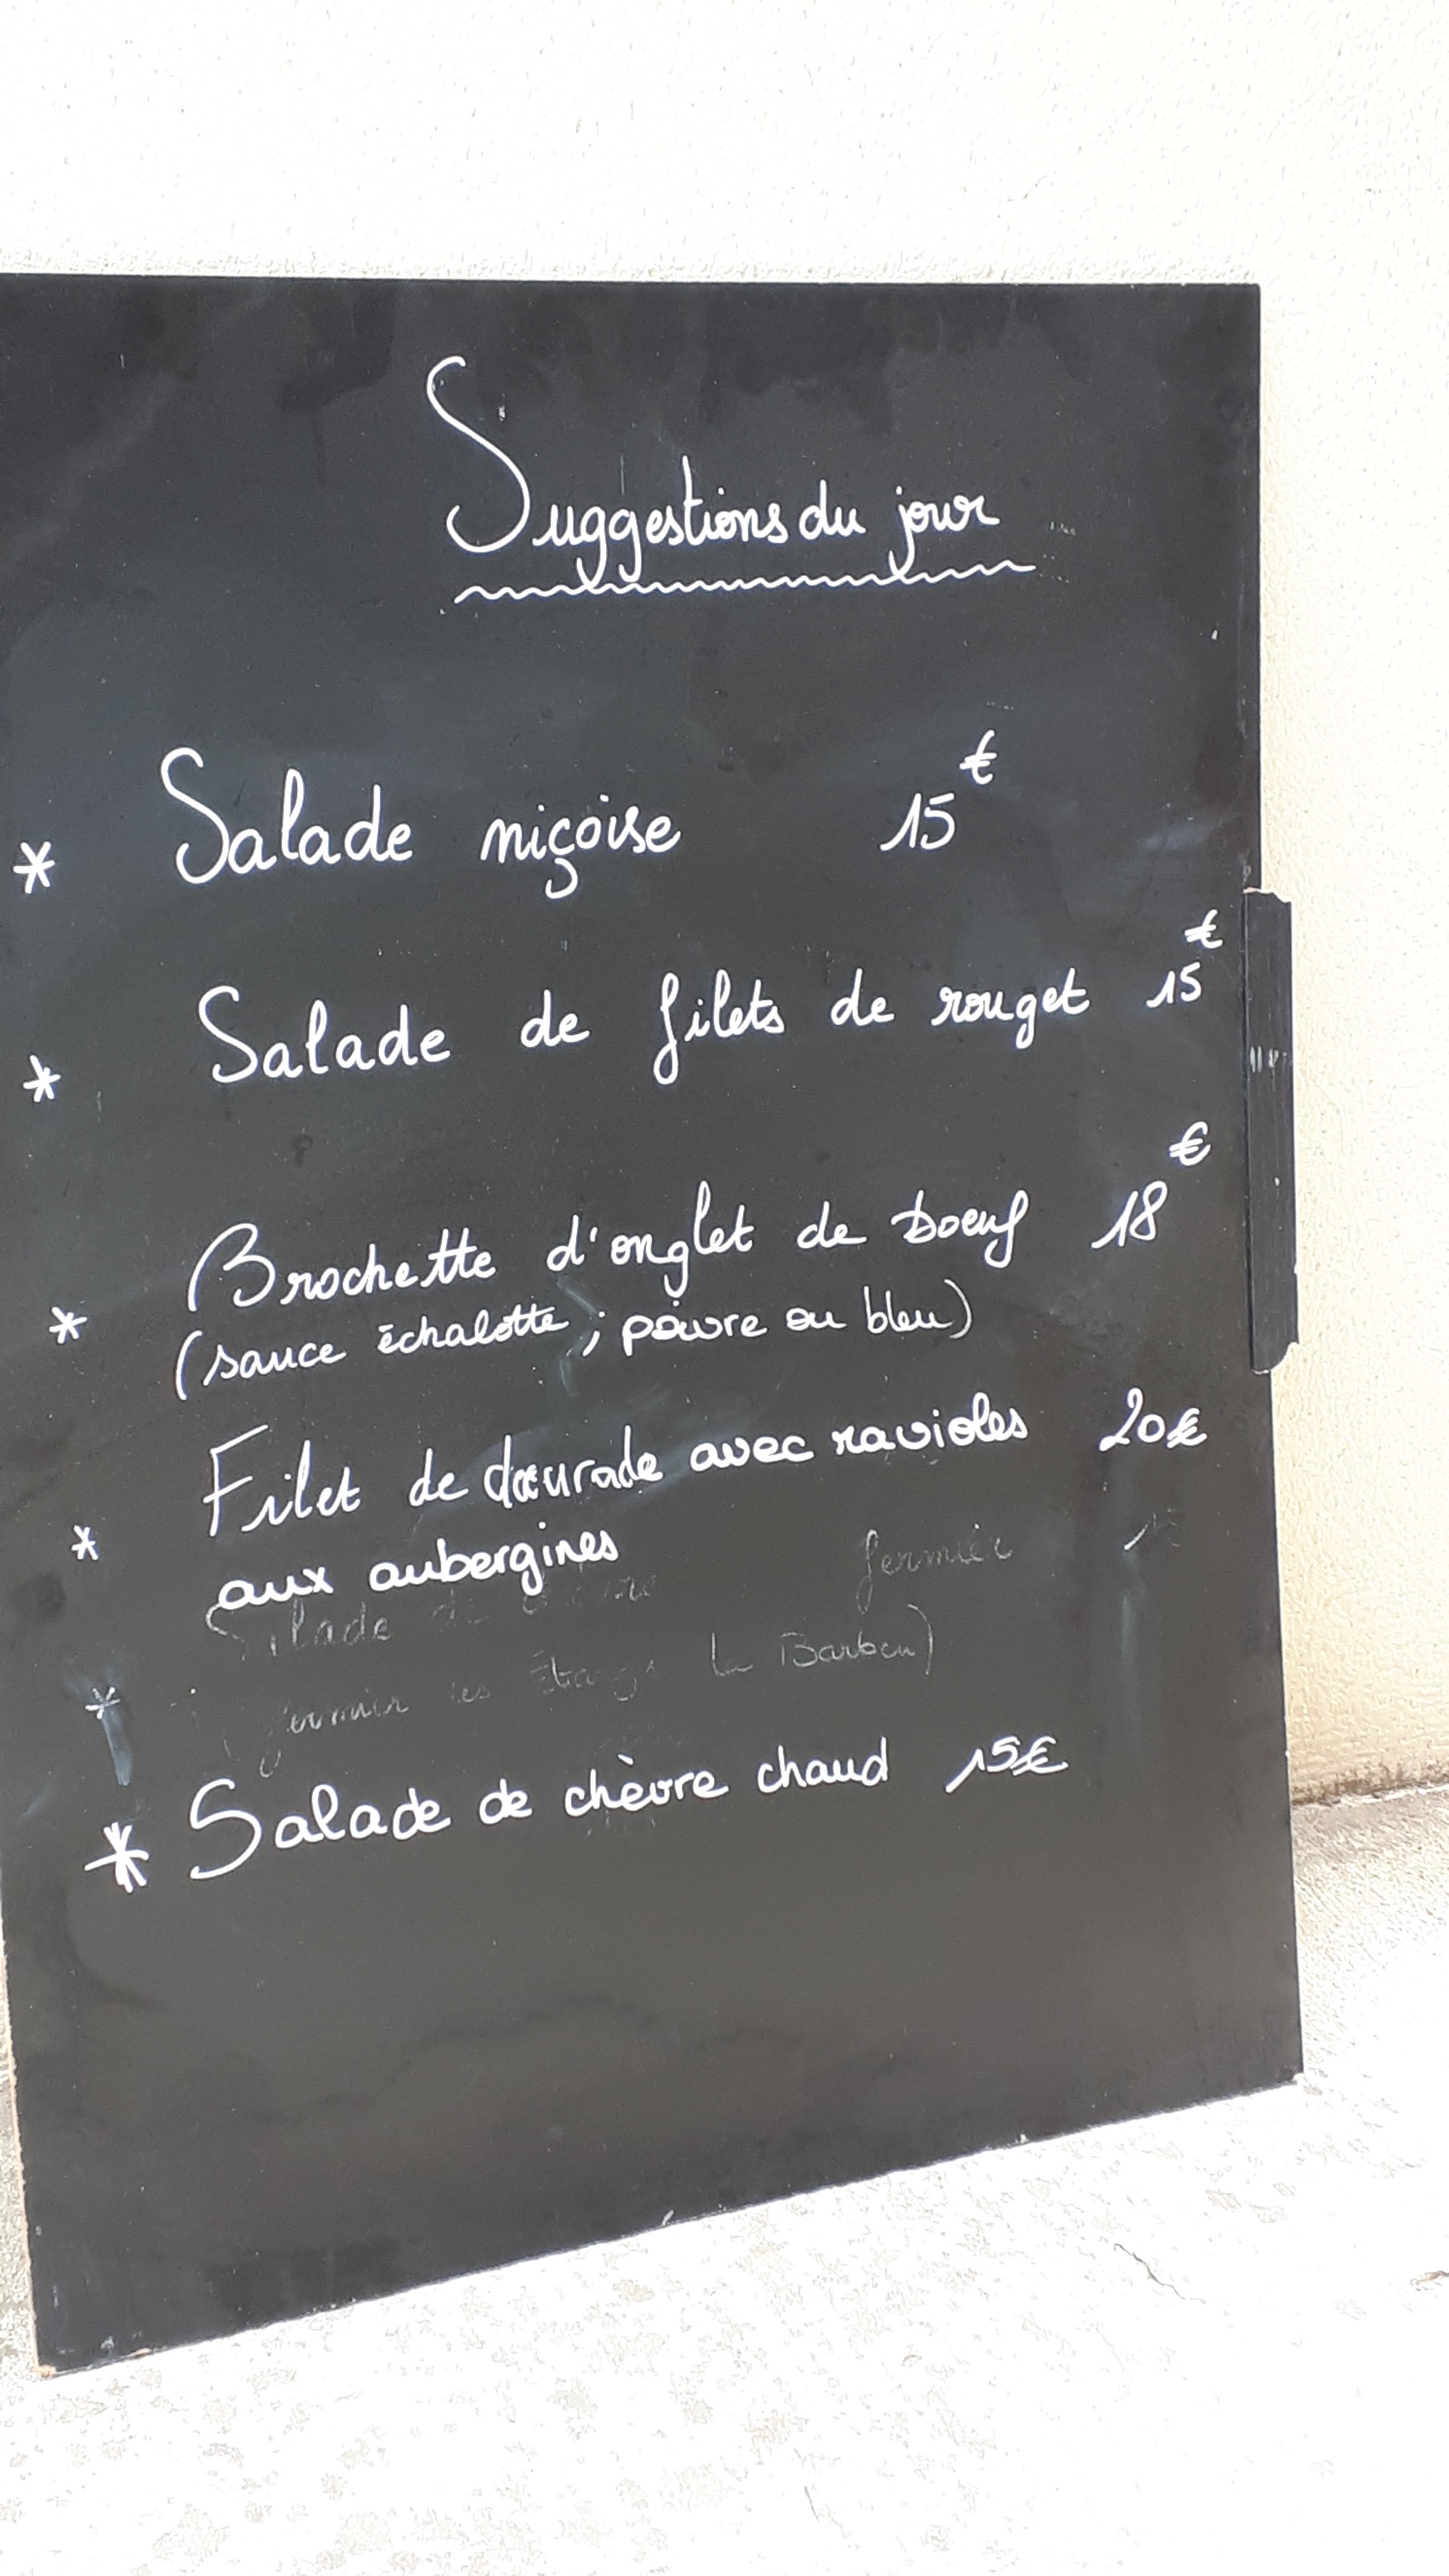 Suggestions du jour
* Salade niçoise 15€
* Salade de filets de rouget 15€
* Brochette d'onglet de boeuf 18€
(sauce échalotte ; poivre ou bleu)
* Filet de daurade avec ravioles 20€
aux aubergines
fermier
Salade de
* fermier les Étangs La Barben)
* Salade de chèvre chaud 15€